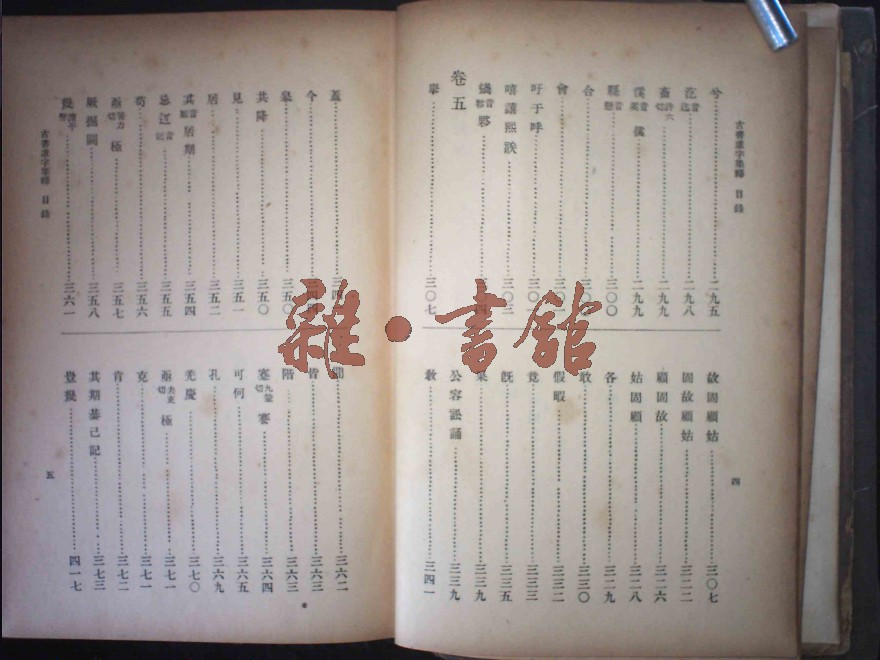 古書虛字集釋 目錄
四
兮……二九五
迄音迄……二九八
畜許六切……二九九
僕……二九九
縣音懸……三〇〇
合……三〇〇
會……三〇一
吁于呼……三〇一
嘻譆熙誒……三〇三
卷五
舉……三〇七
故固顧姑……三〇七
固故顧姑……三二二
顧固故……三二六
姑固顧……三二八
各……三二九
敢……三三〇
假暇……三三二
竟……三三三
既……三三五
公容訟誦……三三九
敎……三四一
蓋
今……三四四
皋……三五〇
共降……三五〇
見……三五一
居……三五二
其音姬居期……三五四
忌辺音記……三五五
苟……三五六
亟 極……三五七
厥掘闕……三五八
幾……三六一
開……三六二
皆……三六二
階……三六三
蹇九輦切謇……三六四
可何……三六五
孔……三六九
羌慶……三七〇
亟去吏切 極……三七一
克……三七一
肯……三七二
其期朞己記……三七三
豈幾……四一七
古書虛字集釋 目錄
五
雜·書館